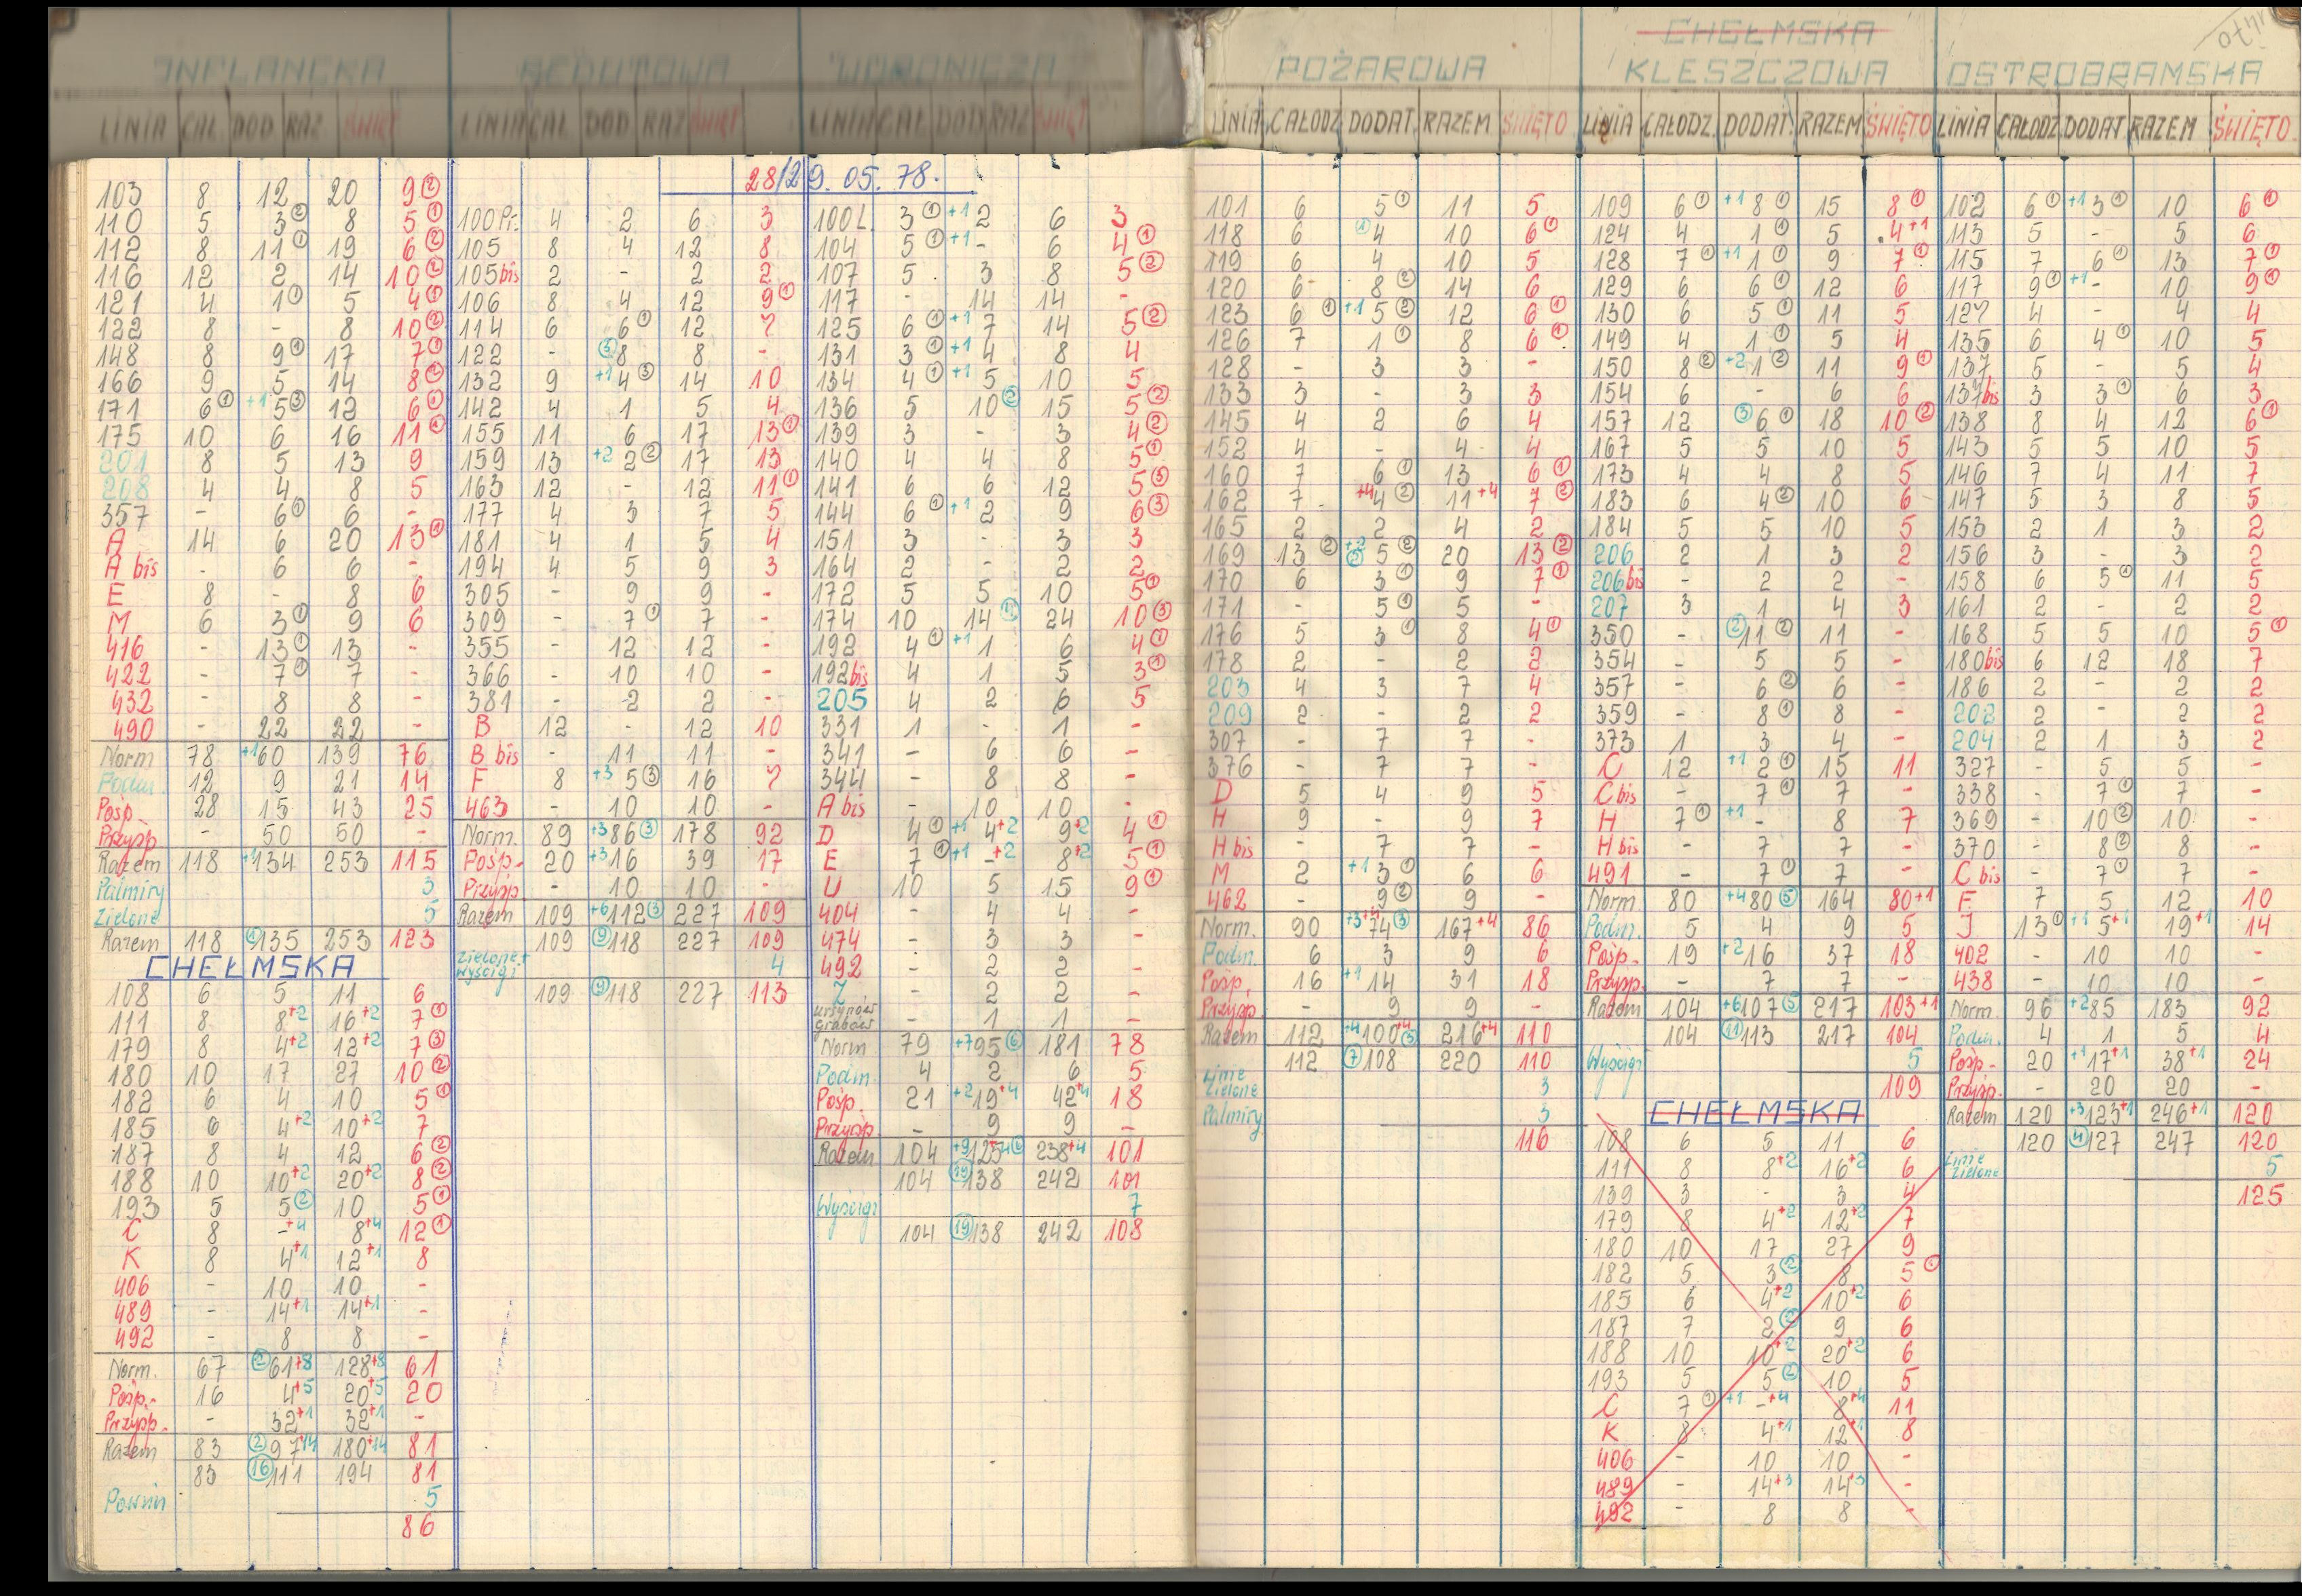 INFLANCKA
LINIA CAŁ DOD RAZ ŚWIĘT
103 8 12 20 9②
110 5 3② 8 5①
112 8 11① 19 6②
116 12 2 14 10②
121 4 1① 5 4①
122 8 - 8 10②
148 8 9① 17 7①
166 9 5 14 8②
171 6① +1 5③ 12 6①
175 10 6 16 11①
201 8 5 13 9
208 4 4 8 5
357 - 6① 6 -
A 14 6 20 13①
A bis - 6 6 -
E 8 - 8 6
M 6 3① 9 6
416 - 13① 13 -
422 - 7① 7 -
432 - 8 8 -
490 - 22 22 -
Norm 78 +1 60 139 76
Podm. 12 9 21 14
Pośp. 28 15 43 25
Przysp - 50 50 -
Razem 118 +1 134 253 115
Palmiry 3
Zielone 5
Razem 118 ①135 253 123
CHEŁMSKA
108 6 5 11 6
111 8 8+2 16+2 7①
179 8 4+2 12+2 7③
180 10 17 27 10②
182 6 4 10 5①
185 6 4+2 10+2 7
187 8 4 12 6②
188 10 10+2 20+2 8②
193 5 5② 10 5①
C 8 -+4 8+4 12①
K 8 4+1 12+1 8
406 - 10 10 -
489 - 14+1 14+1 -
492 - 8 8 -
Norm. 67 ②61+8 128+8 61
Pośp. 16 4+5 20+5 20
Przysp. - 32+1 32+1 -
Razem 83 ②97+14 180+14 81
83 ⑯111 194 81
5
86
REDUTOWA
LINIA CAŁ DOD RAZ ŚWIĘT
28/29.05.78.
100Pr. 4 2 6 3
105 8 4 12 8
105bis 2 - 2 2
106 8 4 12 9①
114 6 6① 12 7
122 - ③8 8 -
132 9 +1 4③ 14 10
142 4 1 5 4
155 11 6 17 13①
159 13 +2 2② 17 13
163 12 - 12 11①
177 4 3 7 5
181 4 1 5 4
194 4 5 9 3
305 - 9 9 -
309 - 7① 7 -
355 - 12 12 -
366 - 10 10 -
381 - 2 2 -
B 12 - 12 10
B bis - 11 11 -
F 8 +3 5③ 16 7
463 - 10 10 -
Norm. 89 +3 86③ 178 92
Pośp. 20 +3 16 39 17
Przysp. - 10 10 -
Razem 109 +6 112③ 227 109
109 ⑨118 227 109
Zielone+
wyścigi 4
109 ⑨118 227 113
WORONICZA
LINIA CAŁ DOD RAZ ŚWIĘT
100L. 3① +1 2 6 3
104 5① +1 - 6 4①
107 5 3 8 5②
117 - 14 14 -
125 6① +1 7 14 5②
131 3① +1 4 8 4
134 4① +1 5 10 5
136 5 10② 15 5②
139 3 - 3 4②
140 4 4 8 5①
141 6 6 12 5③
144 6① +1 2 9 6③
151 3 - 3 3
164 2 - 2 2
172 5 5 10 5①
174 10 14 24 10③
192 4① +1 1 6 4①
192bis 4 1 5 3①
205 4 2 6 5
331 1 - 1 -
341 - 6 6 -
344 - 8 8 -
A bis - 10 10 -
D 4① +1 4+2 9+2 4①
E 7① +1 -+2 8+2 5①
U 10 5 15 9①
404 - 4 4 -
474 - 3 3 -
492 - 2 2 -
Z - 2 2 -
Ursynów
Grabów - 1 1 -
Norm 79 +7 95⑥ 181 78
Podm. 4 2 6 5
Pośp. 21 +2 19+4 42+4 18
Przysp. - 9 9 -
Razem 104 +9 125+4⑥ 238+4 101
104 ⑲138 242 101
Wyścigi 7
104 ⑲138 242 108
POŻAROWA
LINIA CAŁODZ. DODAT. RAZEM ŚWIĘTO
101 6 5① 11 5
118 6 ①4 10 6①
119 6 4 10 5
120 6 8② 14 6
123 6① +1 5② 12 6①
126 7 1① 8 6①
128 - 3 3 -
133 3 - 3 3
145 4 2 6 4
152 4 - 4 4
160 7 6① 13 6①
162 7 +4 4② 11+4 7②
165 2 2 4 2
169 13② +2 ⑤ 5② 20 13②
170 6 3① 9 7①
171 - 5① 5 -
176 5 3① 8 4①
178 2 - 2 2
203 4 3 7 4
209 2 - 2 2
307 - 7 7 -
376 - 7 7 -
D 5 4 9 5
H 9 - 9 7
H bis - 7 7 -
M 2 +1 3① 6 6
462 - 9② 9 -
Norm. 90 +3+4 74③ 167+4 86
Podm. 6 3 9 6
Pośp. 16 +1 14 31 18
Przysp. - 9 9 -
Razem 112 +4 100+4③ 216+4 110
112 ⑦108 220 110
Linie
Zielone 3
Palmiry 3
116
CHEŁMSKA
KLESZCZOWA
LINIA CAŁODZ. DODAT. RAZEM ŚWIĘTO
109 6① +1 8① 15 8①
124 4 1① 5 4+1
128 7① +1 1① 9 7①
129 6 6① 12 6
130 6 5① 11 5
149 4 1① 5 4
150 8② +2 1② 11 9①
154 6 - 6 6
157 12 ③6① 18 10②
167 5 5 10 5
173 4 4 8 5
183 6 4② 10 6
184 5 5 10 5
206 2 1 3 2
206bis - 2 2 -
207 3 1 4 3
350 - ②11② 11 -
354 - 5 5 -
357 - 6② 6 -
359 - 8① 8 -
373 1 3 4 -
C 12 +1 2① 15 11
C bis - 7① 7 -
H 7① +1 - 8 7
H bis - 7 7 -
491 - 7① 7 -
Norm 80 +4 80⑤ 164 80+1
Podm. 5 4 9 5
Pośp. 19 +2 16 37 18
Przysp. - 7 7 -
Razem 104 +6 107⑤ 217 103+1
104 ⑪113 217 104
Wyścigi 5
109
CHEŁMSKA
108 6 5 11 6
111 8 8+2 16+2 6
139 3 - 3 4
179 8 4+2 12+2 7
180 10 17 27 9
182 5 3② 8 5①
185 6 4+2 10+2 6
187 7 2② 9 6
188 10 10+2 20+2 6
193 5 5② 10 5
C 7① +1 -+4 8+4 11
K 8 4+1 12+1 8
406 - 10 10 -
489 - 14+3 14+3 -
492 - 8 8 -
OSTROBRAMSKA
LINIA CAŁODZ. DODAT RAZEM ŚWIĘTO
102 6① +1 3① 10 6①
113 5 - 5 6
115 7 6① 13 7①
117 9① +1 - 10 9①
127 4 - 4 4
135 6 4① 10 5
137 5 - 5 4
137bis 3 3① 6 3
138 8 4 12 6①
143 5 5 10 5
146 7 4 11 7
147 5 3 8 5
153 2 1 3 2
156 3 - 3 2
158 6 5① 11 5
161 2 - 2 2
168 5 5 10 5①
180bis 6 12 18 7
186 2 - 2 2
202 2 - 2 2
204 2 1 3 2
327 - 5 5 -
338 - 7① 7 -
369 - 10② 10 -
370 - 8② 8 -
C bis - 7① 7 -
F 7 5 12 10
J 13① +1 5+1 19+1 14
402 - 10 10 -
438 - 10 10 -
Norm 96 +2 85 183 92
Podm. 4 1 5 4
Pośp. 20 +1 17+1 38+1 24
Przysp. - 20 20 -
Razem 120 +3 123+1 246+1 120
120 ④127 247 120
Linie
Zielone 5
125